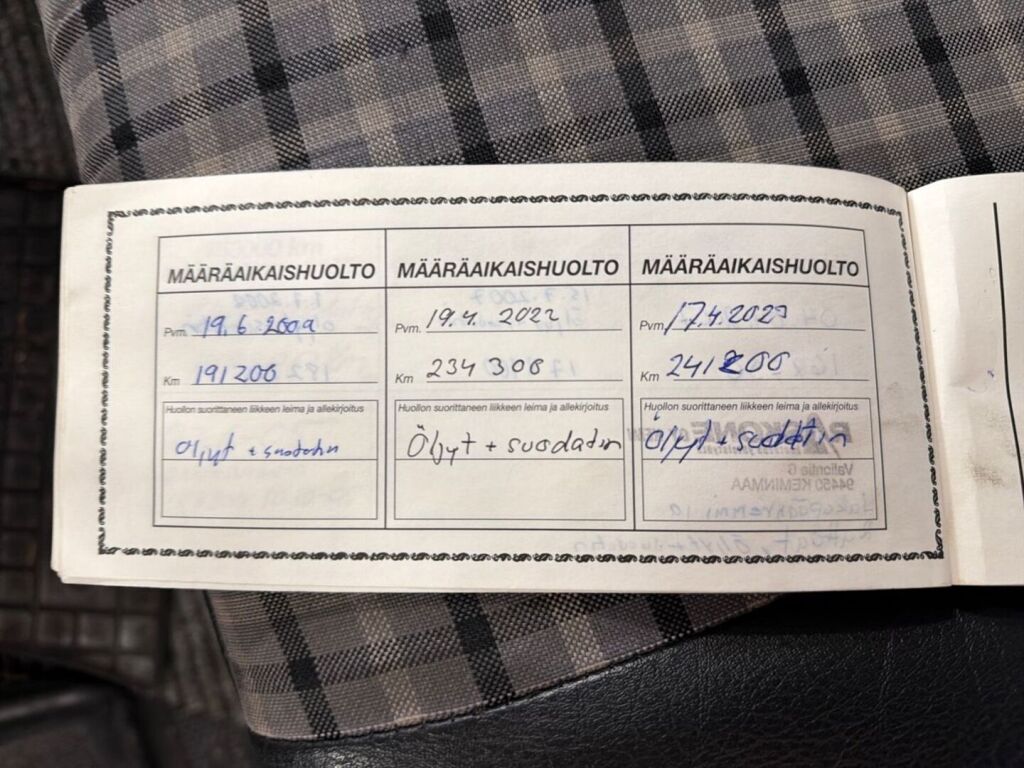 MÄÄRÄAIKAISHUOLTO
Pvm. 19.6 2009
Km 191 206
Huollon suorittaneen liikkeen leima ja allekirjoitus
Öljyt + suodatin
MÄÄRÄAIKAISHUOLTO
Pvm. 19.4. 2022
Km 234 306
Huollon suorittaneen liikkeen leima ja allekirjoitus
Öljyt + suodatin
MÄÄRÄAIKAISHUOLTO
Pvm. 17.4.2023
Km 241200
Huollon suorittaneen liikkeen leima ja allekirjoitus
Öljyt + suodatin
Vallontie 6
94450 KEMINMAA